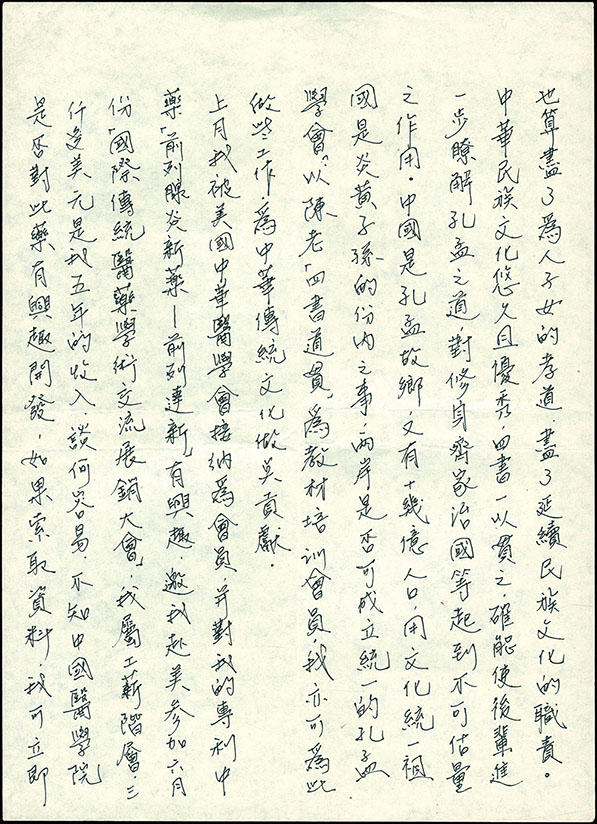 也算盡了為人子女的孝道,盡了延續民族文化的職責。
中華民族文化悠久且優秀,四書一以貫之,確能使後輩進
一步瞭解孔孟之道,對修身齊家治國等起到不可估量
之作用。中國是孔孟故鄉,又有十幾億人口,用文化統一祖
國是炎黃子孫的份內之事,兩岸是否可成立統一的孔孟
學會?以陳老「四書道貫」為教材培訓會員,我亦可為此
做些工作,為中華傳統文化做吳貢獻。
上月我被美國中華醫學會接納為會員,并對我的專利中
藥「前列腺炎新藥—前列達新」有興趣,邀我赴美參加六月
份「國際傳統醫藥學術交流展銷大會」,我屬工薪階層,三
仟多美元是我五年的收入,談何容易,不知中國醫學院
是否對此藥有興趣開發,如果索取資料,我可立即